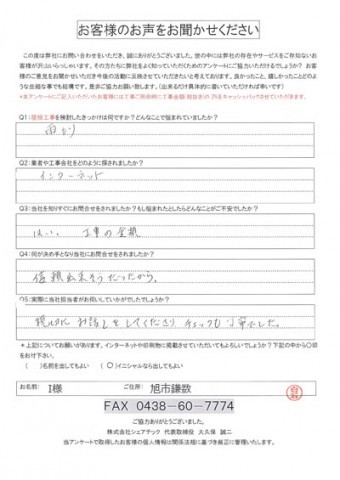 お客様のお声をお聞かせください
この度は弊社にお問い合わせをいただき、誠にありがとうございました。世の中には弊社の存在やサービスをご存知ないお
客様が沢山いらっしゃいます。その方たちに弊社をよく知っていただくためのアンケートにご協力いただけるでしょうか？ お客
様のご意見をお聞かせいただき今後の活動に反映させていただきたいと考えております。良かったこと、嬉しかったことどのよ
うな些細な事でも結構です。是非ご協力お願い致します。（出来るだけ具体的に書いていただければ幸いです）
Q1:屋根工事を検討したきっかけは何ですか？どんなことで悩まれていましたか？
雨もり
Q2:業者や工事会社をどのように探されましたか？
インターネット
Q3:当社を知りすぐにお問合せをされましたか？もし悩まれたとしたらどんなことがご不安でしたか？
はい、 工事の金額
Q4:何が決め手となり当社にお問合せをされましたか？
信頼出来そうだったから。
Q5:実際に当社担当者がお伺いしていかがでしたでしょうか？
をしてくださり チェックも丁寧でした。
＊上記についてお願いがあります。インターネットや印刷物に掲載させていただいてもよろしいでしょうか？下記の中から○印
をお付け下さい。
（ ）名前を出してもよい （○）イニシャルなら出してもよい
お名前: I様 ご住所: 旭市鎌数
FAX 0438-60-7774
ご協力ありがとうございました。
株式会社シェアテック 代表取締役 大久保 誠二
当アンケートで取得したお客様の個人情報は関係法規に基づき厳正に管理いたします。